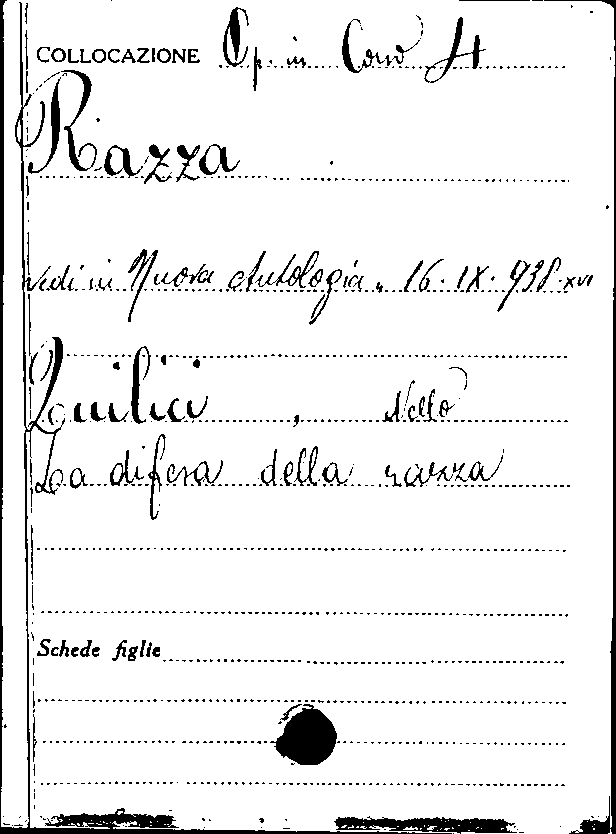 COLLOCAZIONE Op. in Cors 4
Razza
Vedi in Nuova Antologia „ 16. IX. 938. XVI
Quilici , Nello
La difesa della razza
Schede figlie